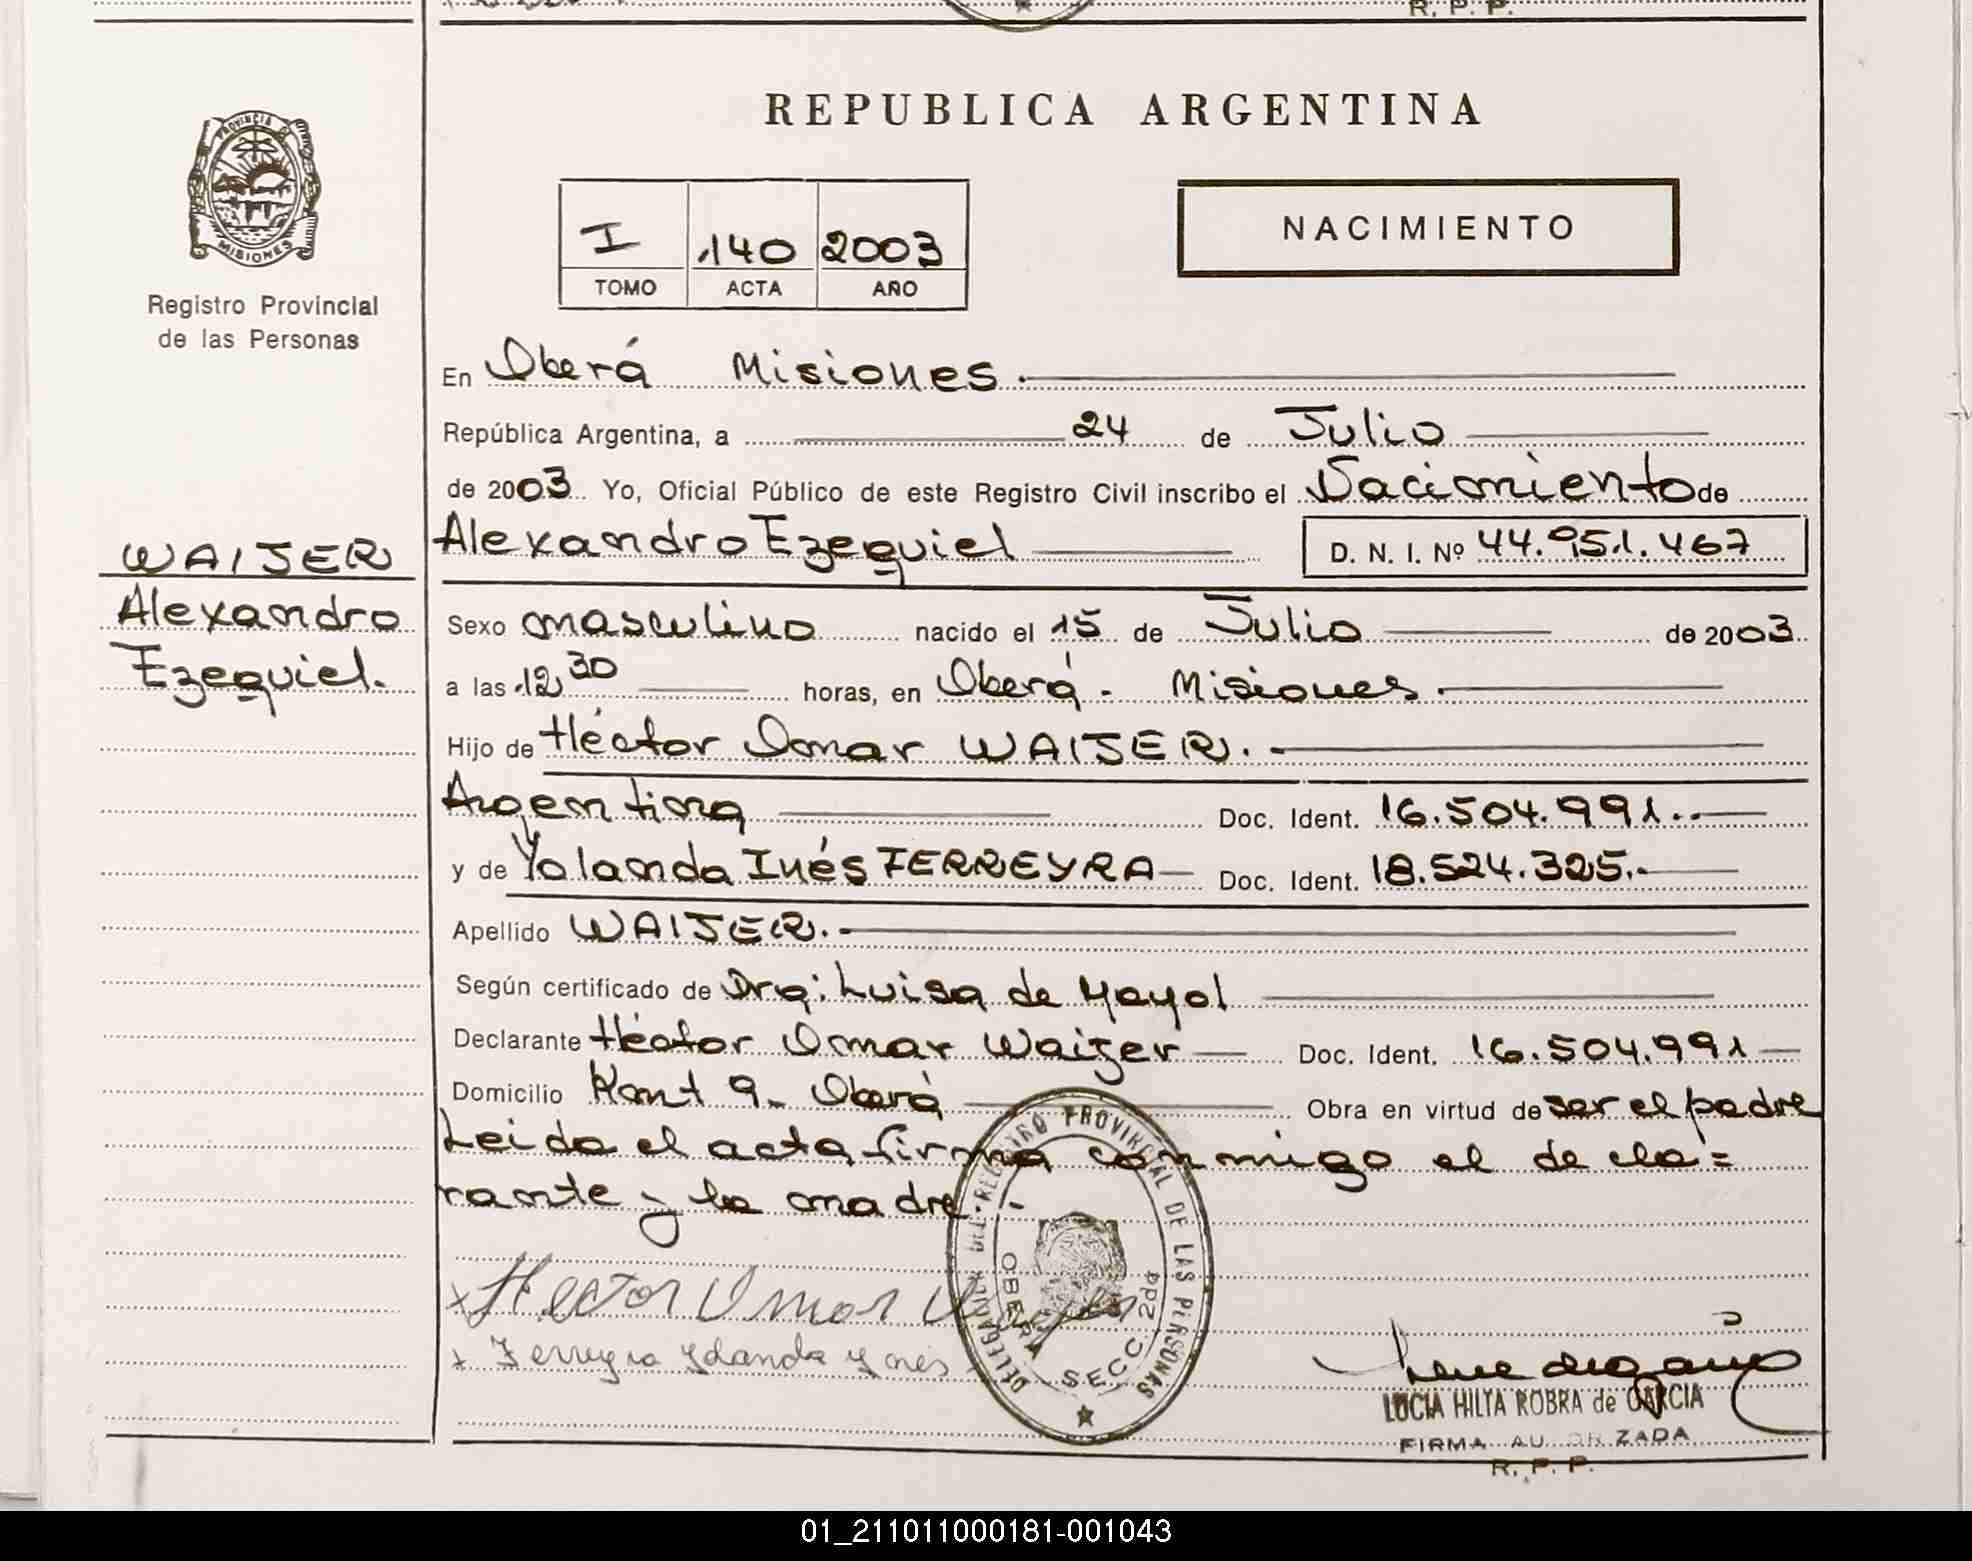 R. P. P.
REPUBLICA ARGENTINA
PROVINCIA DE
MISIONES
Registro Provincial
de las Personas
I 140 2003
TOMO ACTA AÑO
NACIMIENTO
En Oberá Misiones.
República Argentina, a 24 de Julio
de 2003 Yo, Oficial Público de este Registro Civil inscribo el Nacimiento de
Alexandro Ezequiel D. N. I. Nº 44.951.467
WAIJER
Alexandro
Ezequiel.
Sexo masculino nacido el 15 de Julio de 2003
a las 12,30 horas, en Oberá - Misiones.
Hijo de Héctor Omar WAIJER.-
Argentina Doc. Ident. 16.504.991.-
y de Yolanda Inés FERREYRA Doc. Ident. 18.524.325.-
Apellido WAIJER.-
Según certificado de Dra: Luisa de Mayol
Declarante Héctor Omar Waijer Doc. Ident. 16.504.991
Domicilio Kmt 9- Oberá Obra en virtud de ser el padre
Leida el acta firma conmigo el decla=
rante y la madre.-
x Hector Omar
x Ferreyra Yolanda Ynes
DELEGACION DEL REGISTRO PROVINCIAL DE LAS PERSONAS
OBERA SECC 2da
LUCIA HILTA ROBRA de GARCIA
FIRMA AU OR ZADA
R. P. P.
01_211011000181-001043